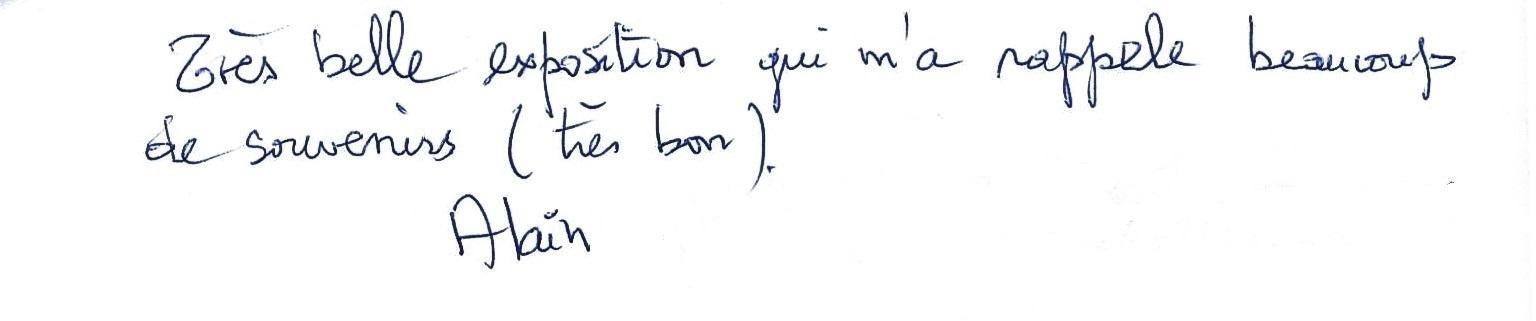 Très belle exposition qui m'a rappele beaucoup
de souvenirs (très bon).
Alain